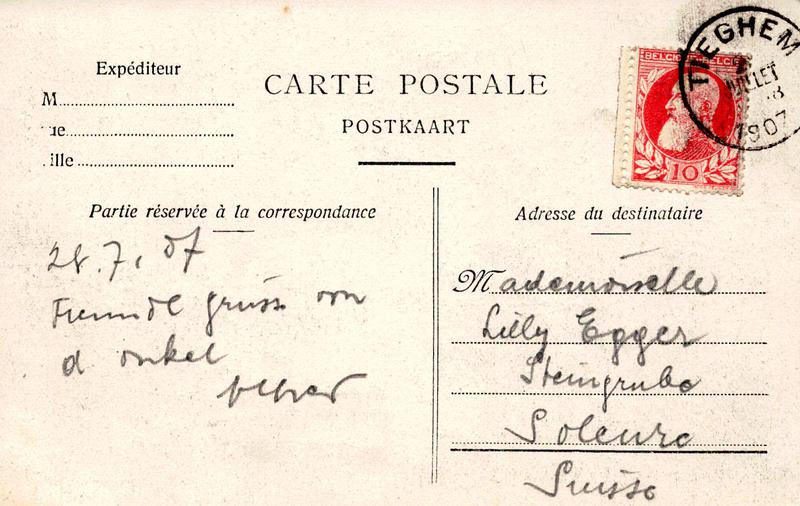 Expéditeur
M
ue
ille
CARTE POSTALE
POSTKAART
BELGIQUE BELGIË
10
TIEGHEM
JUILLET
1907
Partie réservée à la correspondance
28.7.07
Freundl grüss von
d onkel
Alfred
Adresse du destinataire
Mademoiselle
Lilly Egger
Steingrube
Soleure
Suisse